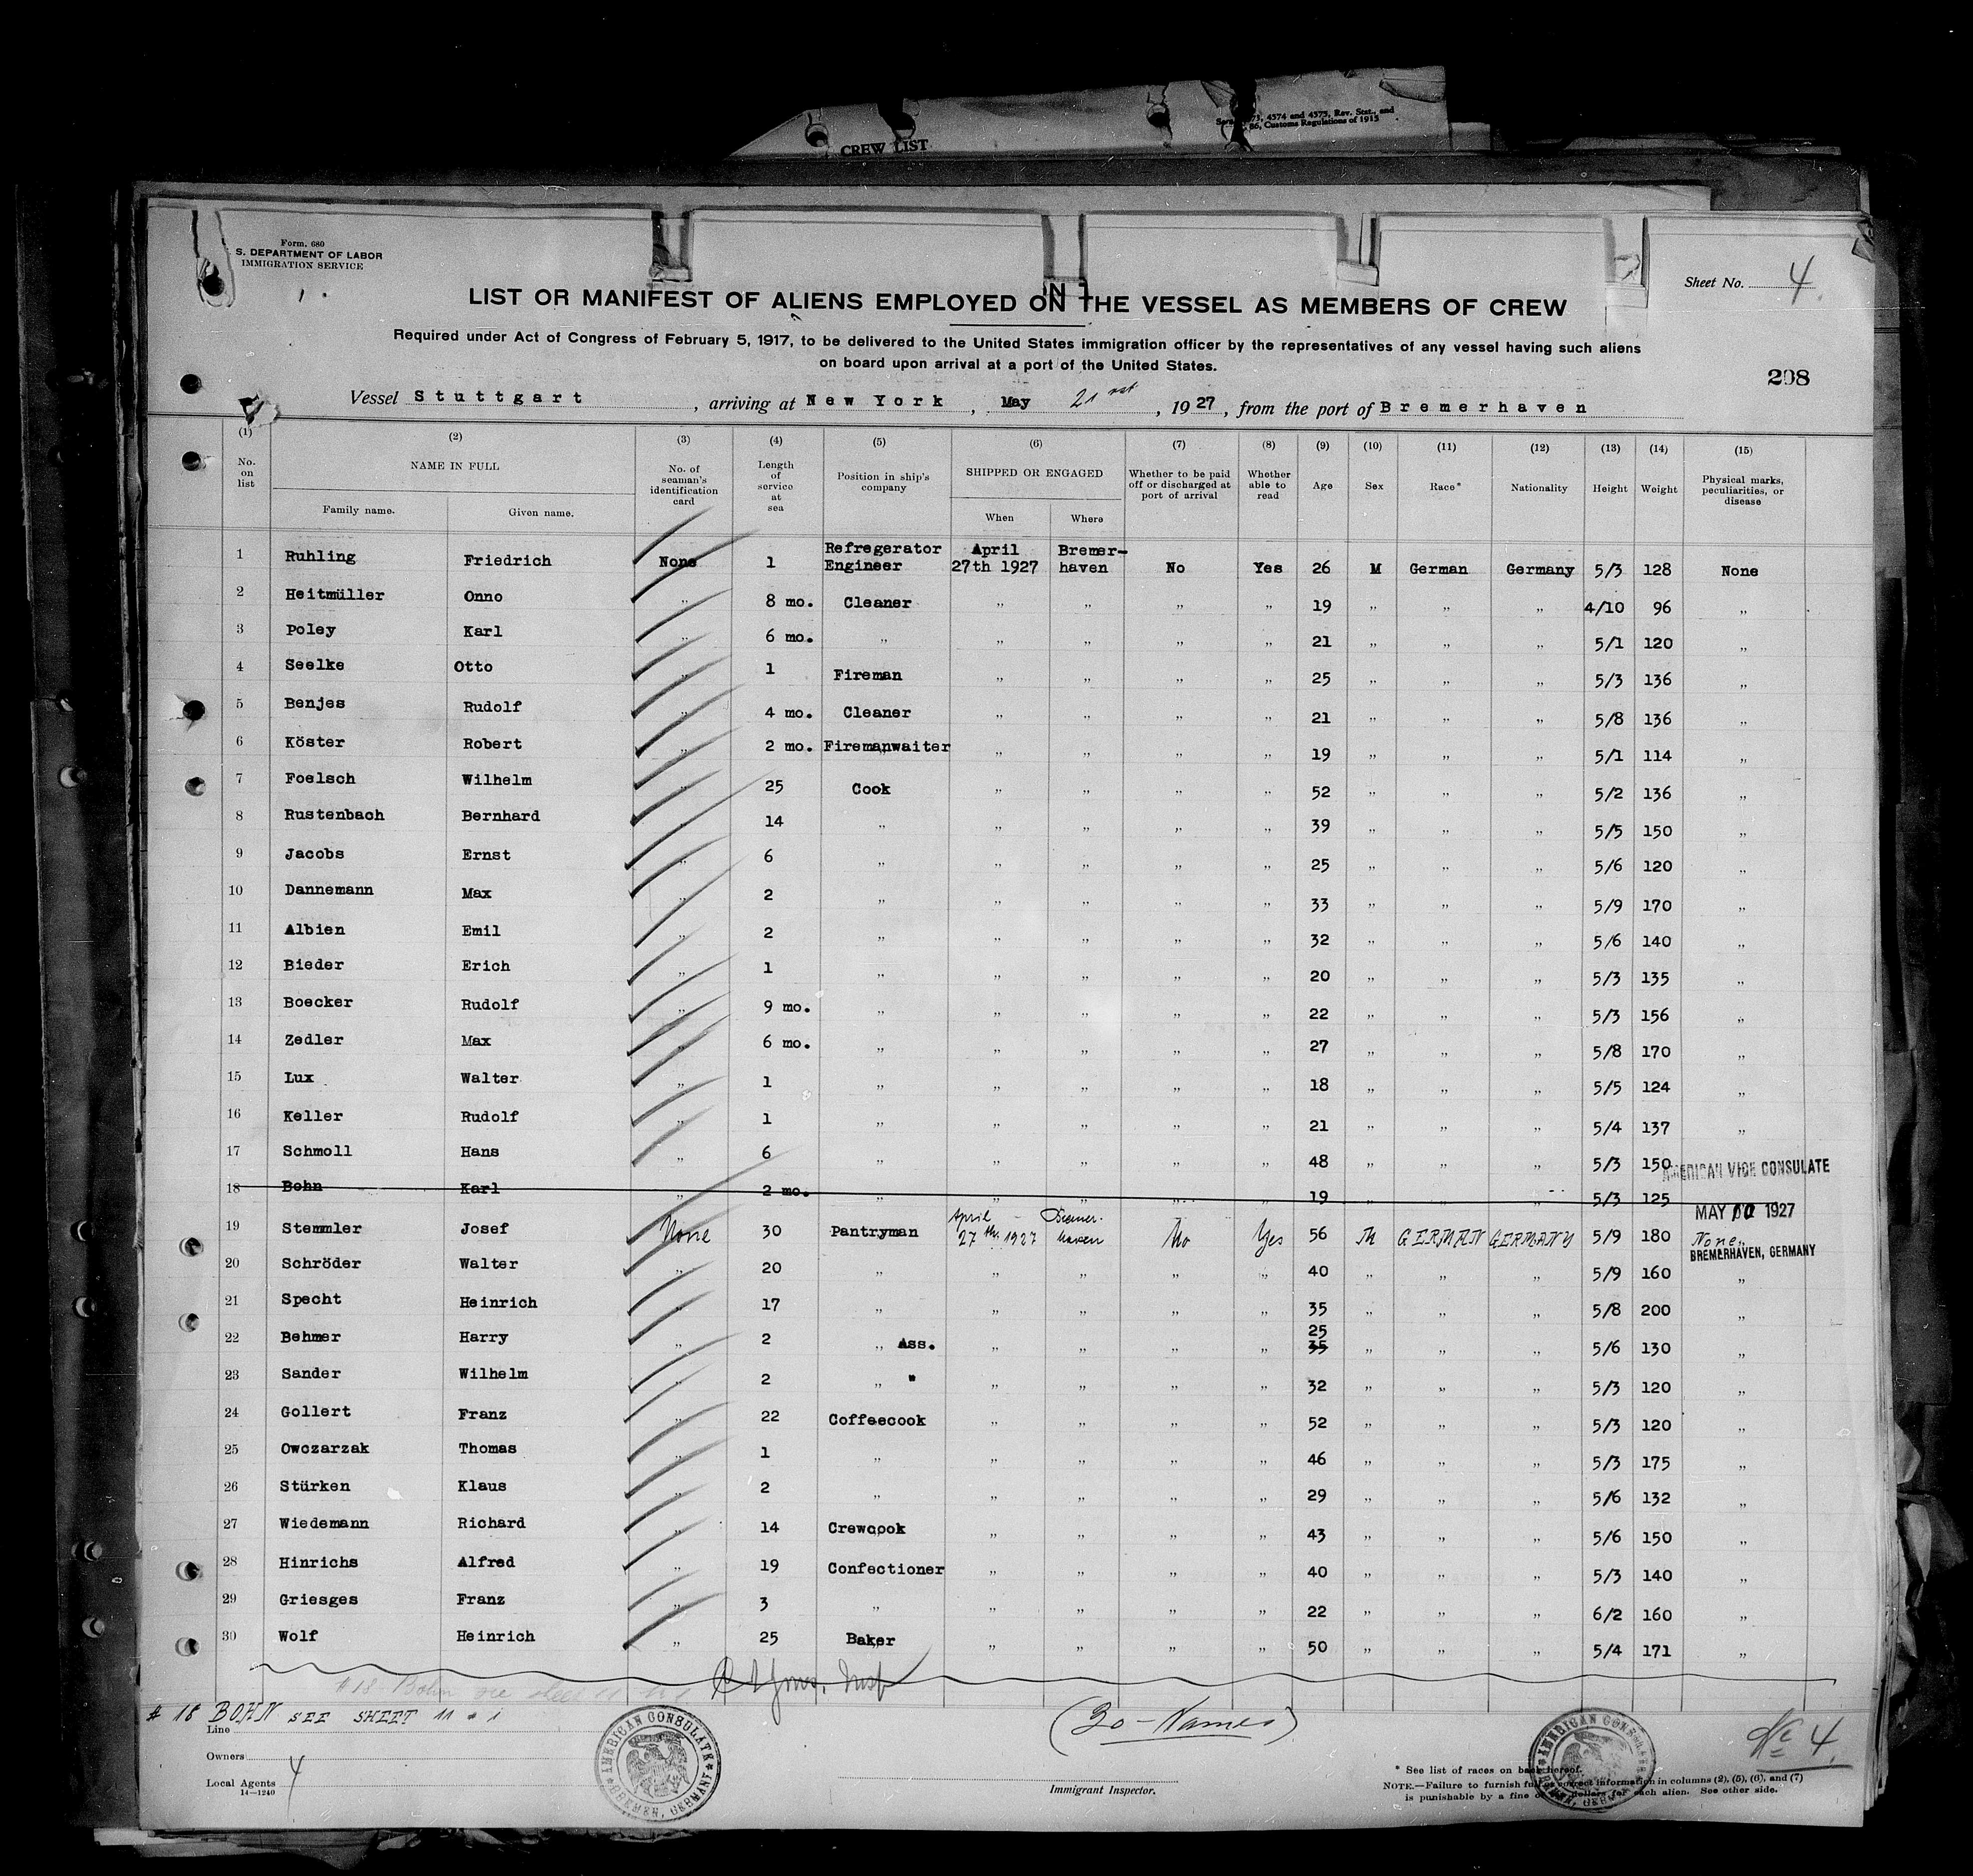 CREW LIST
4574 and 4575, Rev. Stat., and
86, Customs Regulations of 1915
Form. 680
S. DEPARTMENT OF LABOR
IMMIGRATION SERVICE
Sheet No. 4.
LIST OR MANIFEST OF ALIENS EMPLOYED ON THE VESSEL AS MEMBERS OF CREW
Required under Act of Congress of February 5, 1917, to be delivered to the United States immigration officer by the representatives of any vessel having such aliens
on board upon arrival at a port of the United States.
208
Vessel Stuttgart, arriving at New York, May 21st, 1927, from the port of Bremerhaven
(1) (2) (3) (4) (5) (6) (7) (8) (9) (10) (11) (12) (13) (14) (15)
No. on list NAME IN FULL Family name. Given name. No. of seaman's identification card Length of service at sea Position in ship's company SHIPPED OR ENGAGED When Where Whether to be paid off or discharged at port of arrival Whether able to read Age Sex Race* Nationality Height Weight Physical marks, peculiarities, or disease
1 Ruhling Friedrich None 1 Refregerator Engineer April 27th 1927 Bremer-haven No Yes 26 M German Germany 5/3 128 None
2 Heitmüller Onno " 8 mo. Cleaner " " " " 19 " " " 4/10 96 "
3 Poley Karl " 6 mo. " " " " " 21 " " " 5/1 120 "
4 Seelke Otto " 1 Fireman " " " " 25 " " " 5/3 136 "
5 Benjes Rudolf " 4 mo. Cleaner " " " " 21 " " " 5/8 136 "
6 Köster Robert " 2 mo. Firemanwaiter " " " " 19 " " " 5/1 114 "
7 Foelsch Wilhelm " 25 Cook " " " " 52 " " " 5/2 136 "
8 Rustenbach Bernhard " 14 " " " " " 39 " " " 5/5 150 "
9 Jacobs Ernst " 6 " " " " " 25 " " " 5/6 120 "
10 Dannemann Max " 2 " " " " " 33 " " " 5/9 170 "
11 Albien Emil " 2 " " " " " 32 " " " 5/6 140 "
12 Bieder Erich " 1 " " " " " 20 " " " 5/3 135 "
13 Boecker Rudolf " 9 mo. " " " " " 22 " " " 5/3 156 "
14 Zedler Max " 6 mo. " " " " " 27 " " " 5/8 170 "
15 Lux Walter " 1 " " " " " 18 " " " 5/5 124 "
16 Keller Rudolf " 1 " " " " " 21 " " " 5/4 137 "
17 Schmoll Hans " 6 " " " " " 48 " " " 5/3 150
AMERICAN VICE CONSULATE
18 Bohn Karl " 2 mo. " " " " " 19 " " " 5/3 125
MAY 10 1927
19 Stemmler Josef None 30 Pantryman April 27th. 1927 Bremer-haven No Yes 56 M GERMAN GERMANY 5/9 180 None
BREMERHAVEN, GERMANY
20 Schröder Walter " 20 " " " " " 40 " " " 5/9 160 "
21 Specht Heinrich " 17 " " " " " 35 " " " 5/8 200 "
22 Behmer Harry " 2 " Ass. " " " " 25 35 " " " 5/6 130 "
23 Sander Wilhelm " 2 " " " " " " 32 " " " 5/3 120 "
24 Gollert Franz " 22 Coffeecook " " " " 52 " " " 5/3 120 "
25 Owczarzak Thomas " 1 " " " " " 46 " " " 5/3 175 "
26 Stürken Klaus " 2 " " " " " 29 " " " 5/6 132 "
27 Wiedemann Richard " 14 Crewcook " " " " 43 " " " 5/6 150 "
28 Hinrichs Alfred " 19 Confectioner " " " " 40 " " " 5/3 140 "
29 Griesges Franz " 3 " " " " " 22 " " " 6/2 160 "
30 Wolf Heinrich " 25 Baker " " " " 50 " " " 5/4 171 "
# 18 BOHN SEE SHEET 11 # 1
(30 - Names)
No 4.
Line
Owners
Local Agents 4
14—1240
AMERICAN CONSULATE BREMEN, GERMANY
Immigrant Inspector.
AMERICAN CONSULATE BREMEN, GERMANY
* See list of races on back hereof.
NOTE.—Failure to furnish full or correct information in columns (2), (5), (6), and (7)
is punishable by a fine of dollars for each alien. See other side.